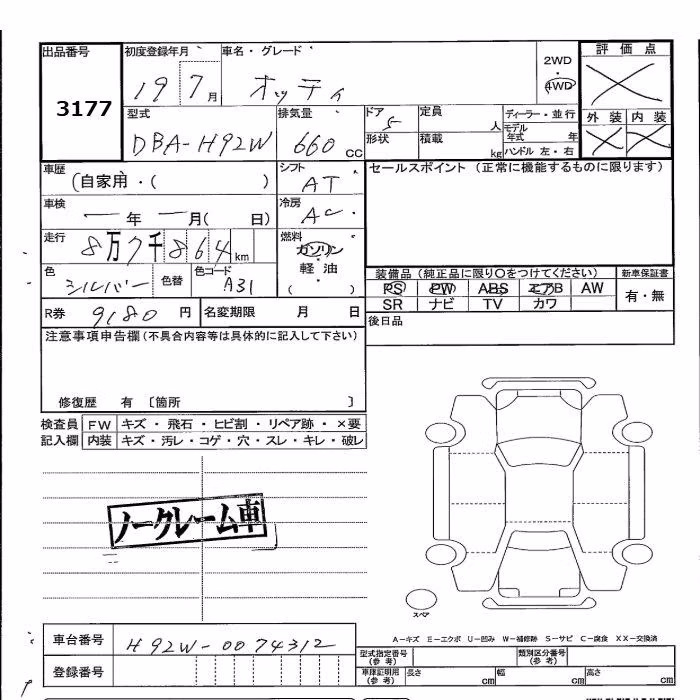 出品番号 初度登録年月 車名・グレード 2WD 評価点
3177 19 7月 オッティ 4WD
型式 排気量 ドア 定員 ディーラー・並行 外装 内装
DBA-H92W 660 CC 5 人 モデル年式 年
形状 積載 kg ハンドル 左・右
車歴 シフト セールスポイント (正常に機能するものに限ります)
(自家用・( ) AT
車検 冷房
ー年ー月( 日) AC
走行 燃料
8万7千864km ガソリン
色 色替 色コード 軽油 装備品 (純正品に限り○をつけてください) 新車保証書
シルバー A31 ( ) PS PW ABS エアB AW 有・無
SR ナビ TV カワ
R券 9180円 名変期限 月 日 後日品
注意事項申告欄(不具合内容等は具体的に記入して下さい)
修復歴 有 〔箇所 〕
検査員 FW キズ・飛石・ヒビ割・リペア跡・×要
記入欄 内装 キズ・汚レ・コゲ・穴・スレ・キレ・破レ
ノークレーム車
スペア
A−キズ E−エクボ U−凹み W−補修跡 S−サビ C−腐食 XX−交換済
車台番号 H92W-0074312 型式指定番号(参考) 類別区分番号(参考)
登録番号 車庫証明用(参考) 長さ cm 幅 cm 高さ cm